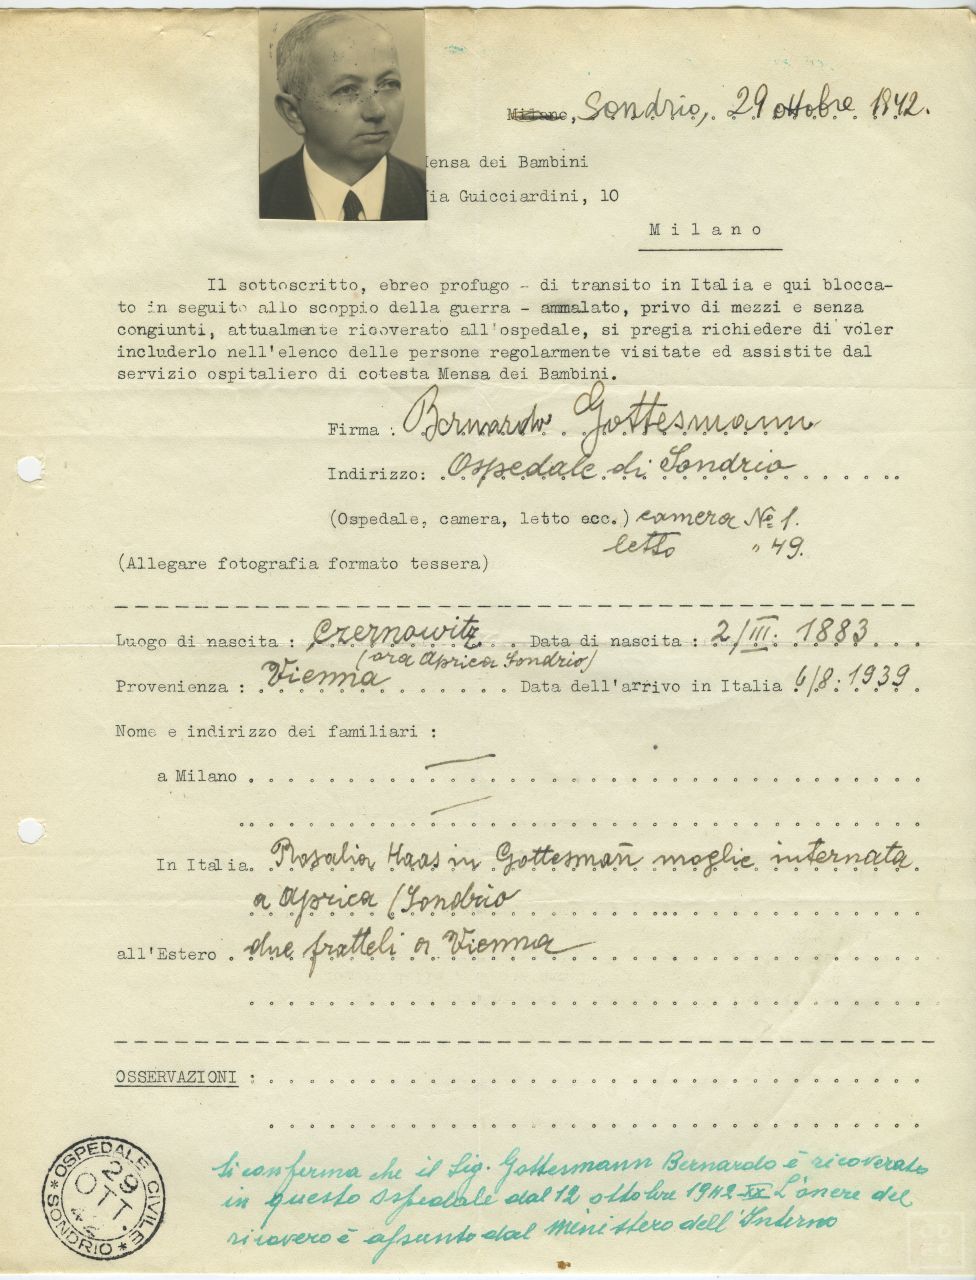 Milano, Sondrio, 29 ottobre 1942.
Mensa dei Bambini
Via Guicciardini, 10
Milano
Il sottoscritto, ebreo profugo - di transito in Italia e qui blocca-
to in seguito allo scoppio della guerra - ammalato, privo di mezzi e senza
congiunti, attualmente ricoverato all'ospedale, si pregia richiedere di voler
includerlo nell'elenco delle persone regolarmente visitate ed assistite dal
servizio ospitaliero di cotesta Mensa dei Bambini.
Firma : Bernardo Gottesmann
Indirizzo: Ospedale di Sondrio
(Ospedale, camera, letto ecc.) camera No 1.
letto " 49.
(Allegare fotografia formato tessera)
Luogo di nascita : Czernowitz Data di nascita : 2/III. 1883
(ora Aprica Sondrio)
Provenienza : Vienna Data dell'arrivo in Italia 6/8. 1939
Nome e indirizzo dei familiari :
a Milano
In Italia. Rosalia Haas in Gottesmañ moglie internata
a Aprica (Sondrio
all'Estero . due fratteli a Vienna
OSSERVAZIONI :
Si conferma che il Sig. Gottesmann Bernardo è ricoverato
in questo ospedale dal 12 ottobre 1942-XX L'onere del
ricovero è assunto dal Ministero dell'Interno
*OSPEDALE CIVILE* SONDRIO
29
OTT
42